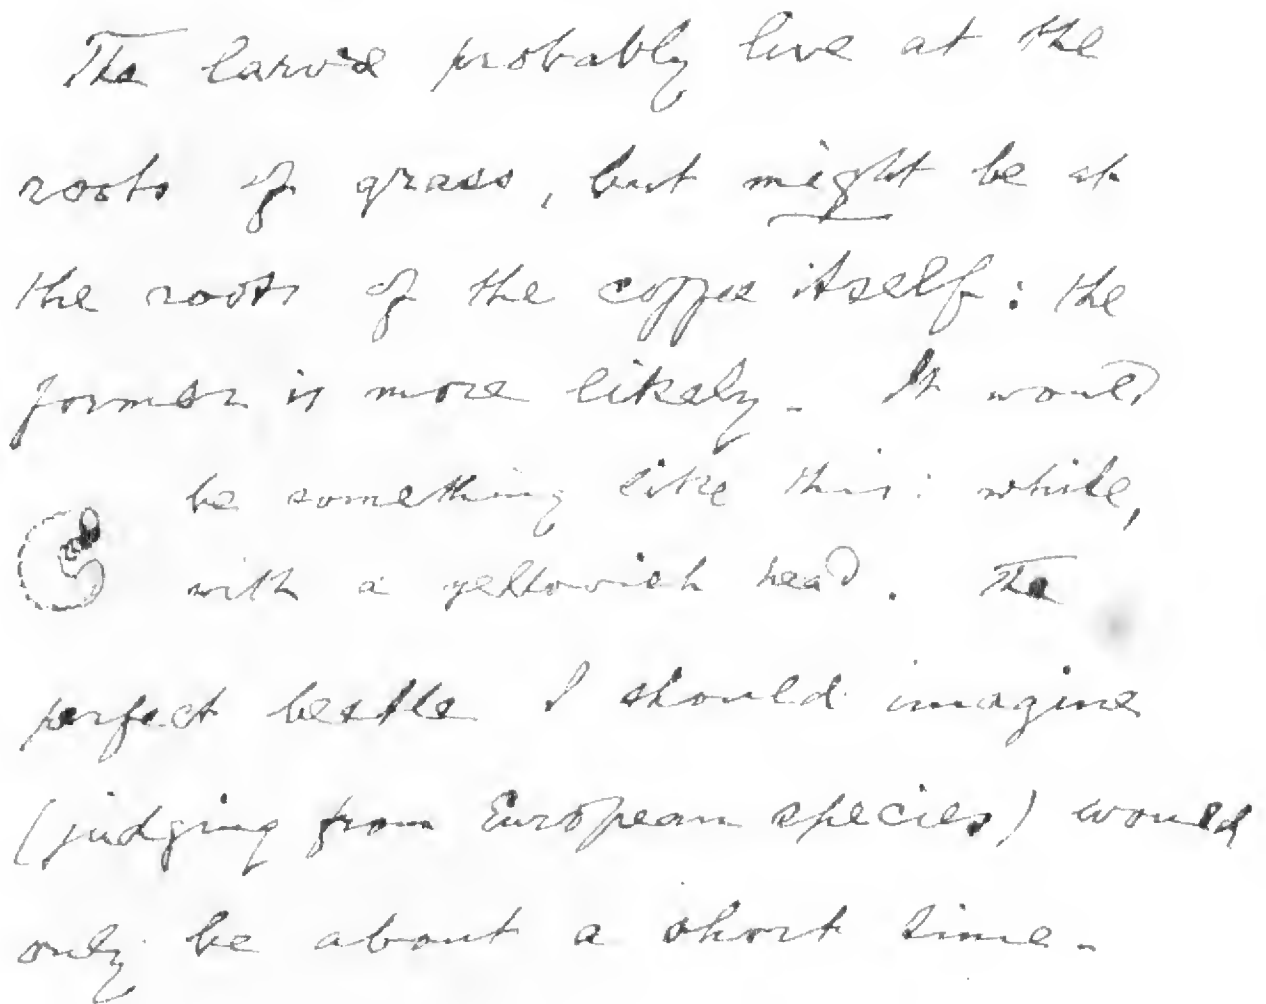 The larvæ probably live at the
roots of grass, but might be at
the roots of the coffee itself: the
former is more likely. It would
be something like this: white,
with a yellowish head. The
perfect beetle I should imagine
(judging from European species) would
only be about a short time.